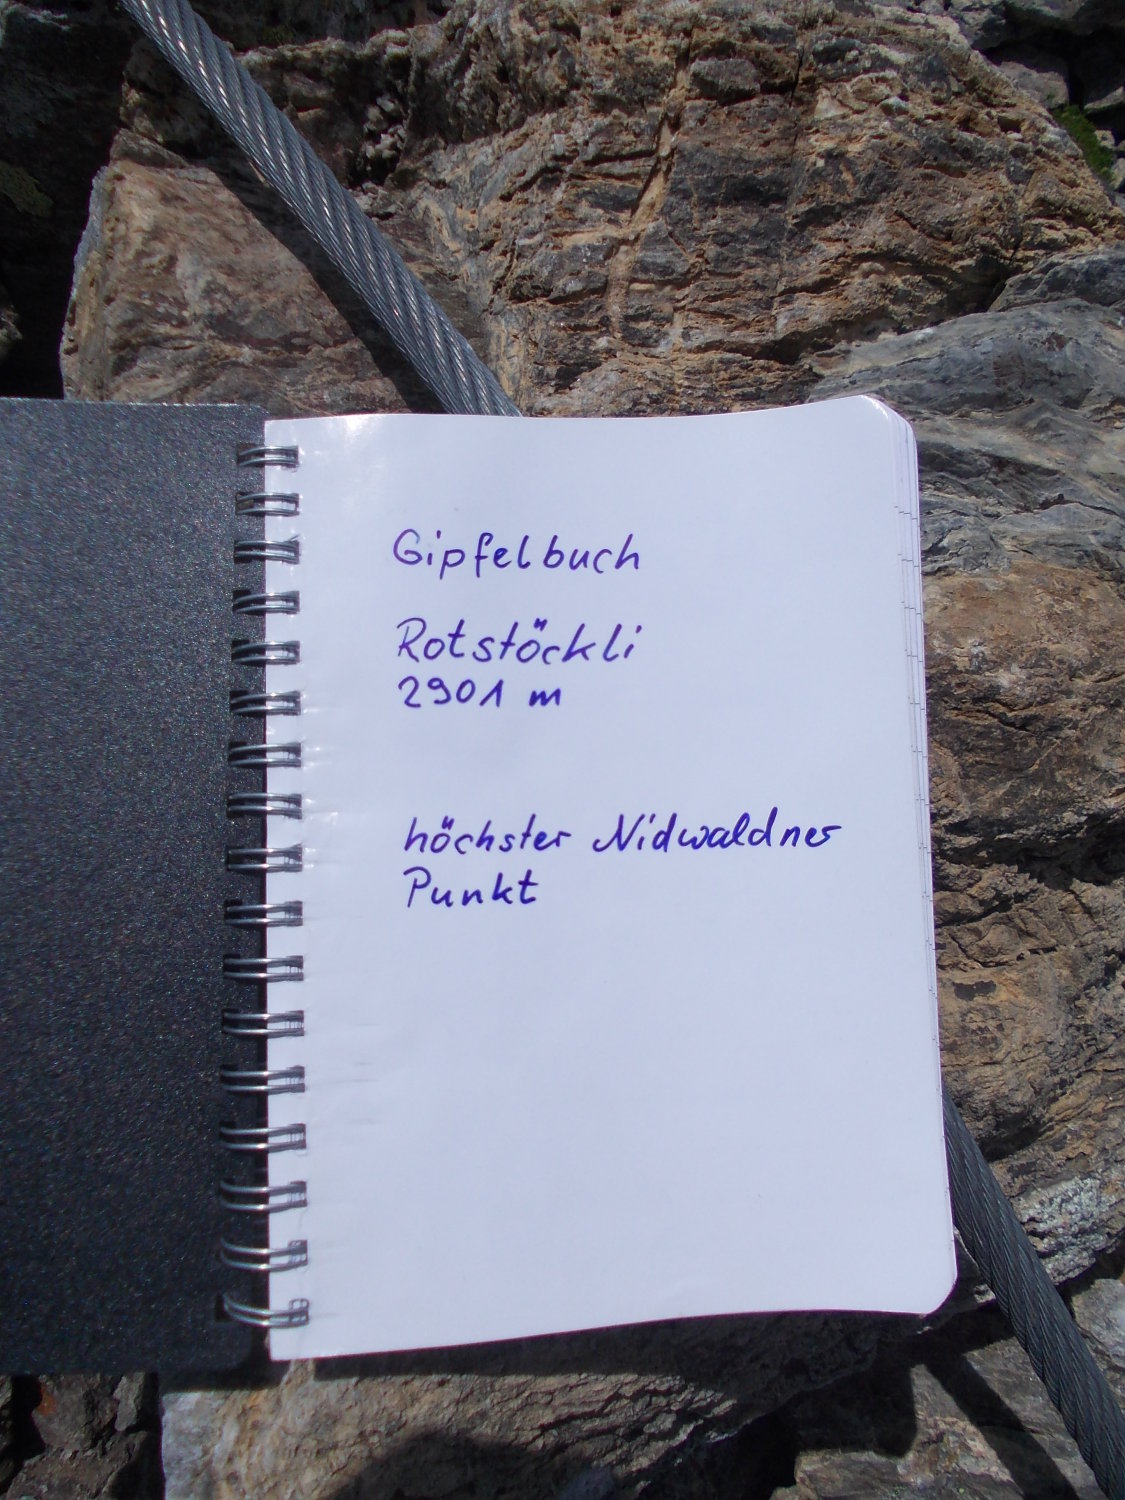 Gipfelbuch
Rotstöckli
2901 m
höchster Nidwaldner
Punkt